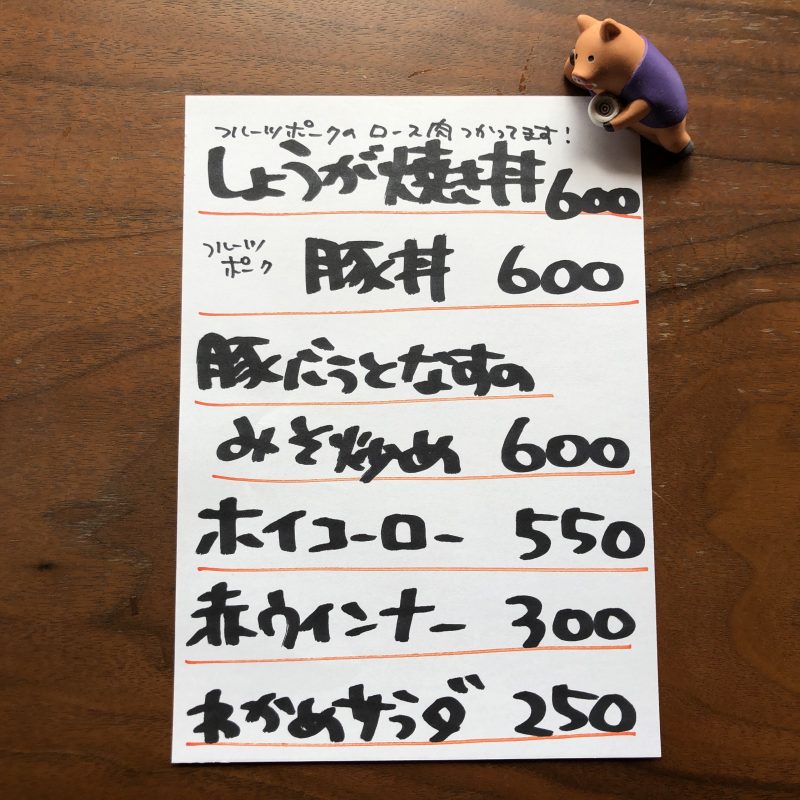 フルーツポークの ロース肉つかってます!
しょうが焼き丼 600
フルーツ
ポーク
豚丼 600
豚だうとなすの
みそ炒め 600
ホイコーロー 550
赤ウインナー 300
わかめサラダ 250